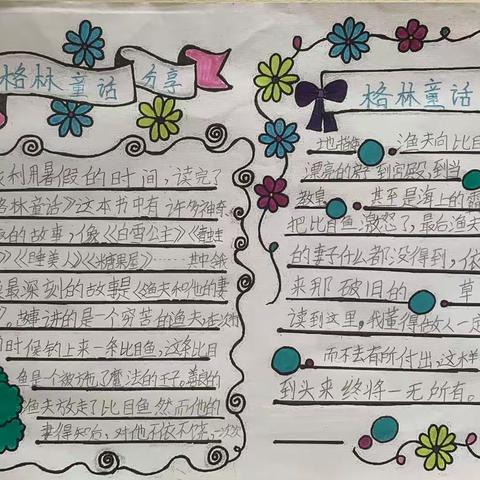 格林童话 分享
利用暑假的时间,读完了
格林童话》这本书中有许多神奇
的故事,像《白雪公主》
》《睡美人》《糖果屋》……其中给
最深刻的故事是《渔夫和他的妻
》,故事讲的是一个穷苦的渔夫
时候钓上来一条比目鱼,这条比目
鱼是一个被施了魔法的王子。善良的
渔夫放走了比目鱼,然而他的
妻得知后,对他不依不饶,一次次
格林童话
地 渔夫向比目
漂亮的 到宫殿,到
教皇 甚至是海上的
把比目鱼激怒了,最后渔夫
的妻子什么都没得到,依
来那破旧的 草
读到这里,我懂得做人一定
而不去有所付出,这样
到头来终将一无所有。